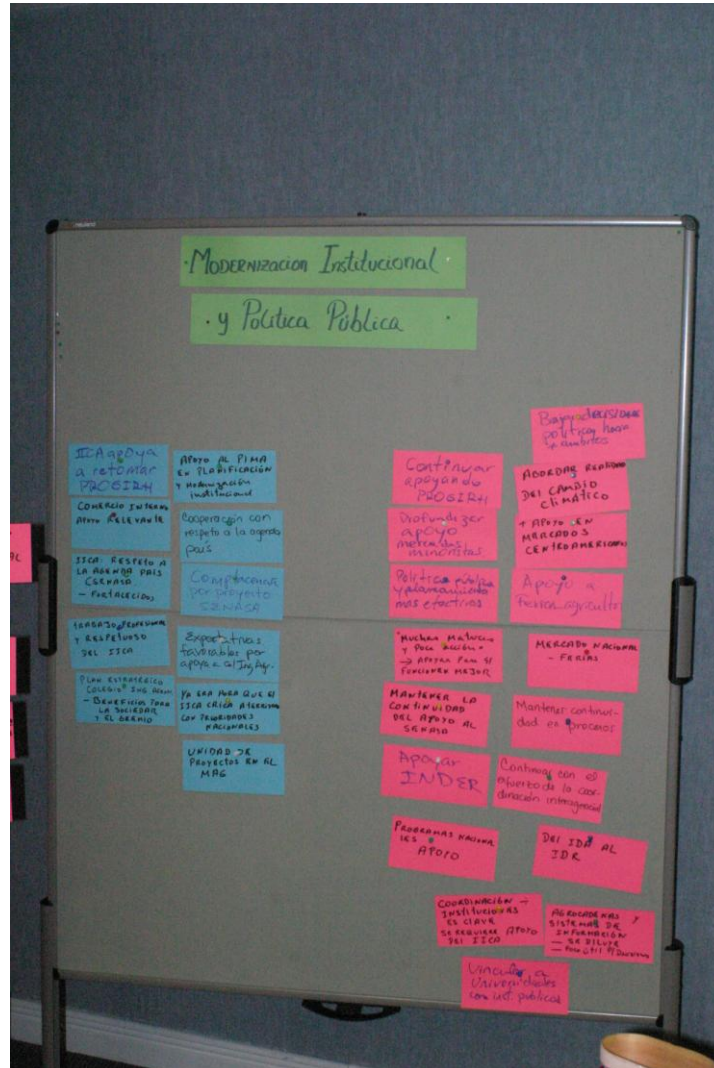 · Modernizacion Institucional ·
· y Política Pública ·
IICA apoya
a retomar
PROGIRH
COMERCIO INTERNO
APOYO RELEVANTE
IICA: RESPETO A
LA AGENDA PAIS
- FORTALECIDOS
TRABAJO PROFESIONAL
Y RESPETUOSO
DEL IICA
PLAN ESTRATÉGICO
COLEGIO ING. AGRON.
- BENEFICIOS PARA
LA SOCIEDAD
Y EL GREMIO
APOYO AL PIMA
EN PLANIFICACIÓN
Y MODERNIZACIÓN
institucional
Cooperación con
respeto a la agenda
país
Complacencia
por proyecto
SENASA
Expectativas
favorables por
apoyo a Col Ing. Agr.
YA ERA HORA QUE EL
IICA
CON PRIORIDADES
NACIONALES
UNIDAD DE
PROYECTOS EN AL
MAG
Continuar
apoyando
PROGIRH
Profundizar
apoyo
mercados
minoristas
Política pública
y planeamiento
más efectivos
"MUCHAS MATRICES
Y POCA ACCIÓN"
→ APOYAR PARA Q'
FUNCIONEN MEJOR
MANTENER LA
CONTINUIDAD
DEL APOYO AL
SENASA
Apoyar
INDER
PROGRAMAS NACIONA
LES
APOYO
COORDINACIÓN
INSTITUCIONES
ES CLAVE
SE REQUIERE APOYO
DEL IICA
Vincular a
Universidades
con inst. públicas
Bajar decisiones
políticas hacia
ABORDAR REALIDAD
DEL CAMBIO
CLIMÁTICO
+ APOYO EN
MERCADOS
CENTROAMERICANOS
Apoyo a
Ferias agricultor
MERCADO NACIONAL
- FERIAS
Mantener continui-
dad en procesos
Continuar con el
esfuerzo de la coor-
dinación interagencial
DEL IDA AL
IDR
AGROCADENAS Y
SISTEMAS DE
INFORMACIÓN
- SE DILUYE
- Poco útil P/ Decisiones